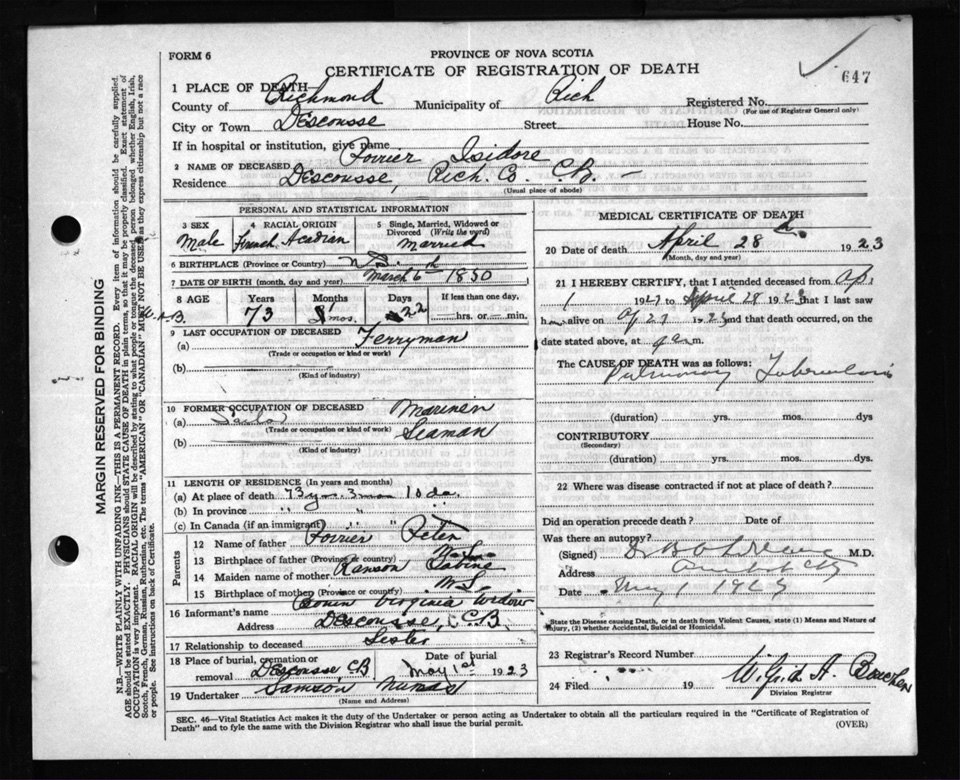 FORM 6
PROVINCE OF NOVA SCOTIA
CERTIFICATE OF REGISTRATION OF DEATH
647
1 PLACE OF DEATH
County of Richmond Municipality of Rich Registered No.
(For use of Registrar General only)
City or Town Descousse Street House No.
If in hospital or institution, give name
2 NAME OF DECEASED Poirier Isidore
Residence Descousse, Rich. Co. C.B. –
(Usual place of abode)
PERSONAL AND STATISTICAL INFORMATION
3 SEX 4 RACIAL ORIGIN 5 Single, Married, Widowed or Divorced (Write the word)
Male French Acadian Married
6 BIRTHPLACE (Province or Country)
7 DATE OF BIRTH (month, day and year) March 6th 1850
8 AGE Years Months Days If less than one day,
73 mos. 22 hrs. or min.
9 LAST OCCUPATION OF DECEASED
(a) Ferryman
(Trade or occupation or kind or work)
(b)
(Kind of industry)
10 FORMER OCCUPATION OF DECEASED Mariner
(a)
(Trade or occupation or kind or work)
(b) Seaman
(Kind of industry)
11 LENGTH OF RESIDENCE (In years and months)
(a) At place of death 73 yrs. 3 mos 10 da.
(b) In province " " "
(c) In Canada (if an immigrant) " "
Parents
12 Name of father Poirier Peter
13 Birthplace of father (Province or country) N.S.
14 Maiden name of mother Sabine
15 Birthplace of mother (Province or country) N.S.
16 Informant's name Bonin Virginia widow
Address Descousse, C.B.
17 Relationship to deceased Sister
18 Place of burial, cremation or removal Descousse CB Date of burial May 1st 1923
19 Undertaker Samson
(Name and Address)
MEDICAL CERTIFICATE OF DEATH
20 Date of death April 28th 1923
(Month, day and year)
21 I HEREBY CERTIFY, that I attended deceased from Ap.
1 19 April 28 19 that I last saw
h alive on 27 and that death occurred, on
date stated above, at m.
The CAUSE OF DEATH was as follows:
Pulmonary Tuberculosis
(duration) yrs. mos. dys
CONTRIBUTORY
(Secondary)
(duration) yrs. mos. dys.
22 Where was disease contracted if not at place of death?
Did an operation precede death? Date of
Was there an autopsy?
(Signed) M.D.
Address
Date May 1
State the Disease causing Death, or in death from Violent Causes, state (1) Means and Nature of Injury, (2) whether Accidental, Suicidal or Homicidal.
23 Registrar's Record Number
24 Filed 19 Wilfrid A. Boucher
Division Registrar
SEC. 46—Vital Statistics Act makes it the duty of the Undertaker or person acting as Undertaker to obtain all the particulars required in the "Certificate of Registration of
Death" and to fyle the same with the Division Registrar who shall issue the burial permit.
(OVER)
MARGIN RESERVED FOR BINDING
N.B.—WRITE PLAINLY WITH UNFADING INK—THIS IS A PERMANENT RECORD. Every item of information should be carefully supplied.
AGE should be stated EXACTLY. PHYSICIANS should STATE CAUSE OF DEATH in plain terms, so that it may be properly classified. Exact statement of
OCCUPATION is very important. RACIAL ORIGIN will be described by stating to what people or tongue the deceased person belonged whether English, Irish,
Scotch, French, German, Russian, Ruthenian, etc. The terms "AMERICAN" OR "CANADIAN" MUST NOT BE USED as they express citizenship but not a race
or people. See instructions on back of Certificate.